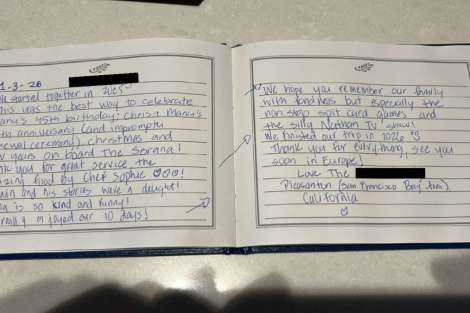 1-3-26
We started together in 2025
This was the best way to celebrate
45th birthday,
th anniversary (and impromptu
newal ceremony), christmas and
w years on board The
nk you for great service, the
azing food by Chef Sophie ♡♡♡!
and his stories were a delight!
is so kind and funny!
enjoyed our 10 days!
We hope you remember our family
with fondness but especially the
non stop spit card games and
the silly TV shows!
We finished our trip in 2026
Thank you for everything, see you
soon in Europe!
Love The
Pleasanton (San Francisco Bay Area),
California
♡